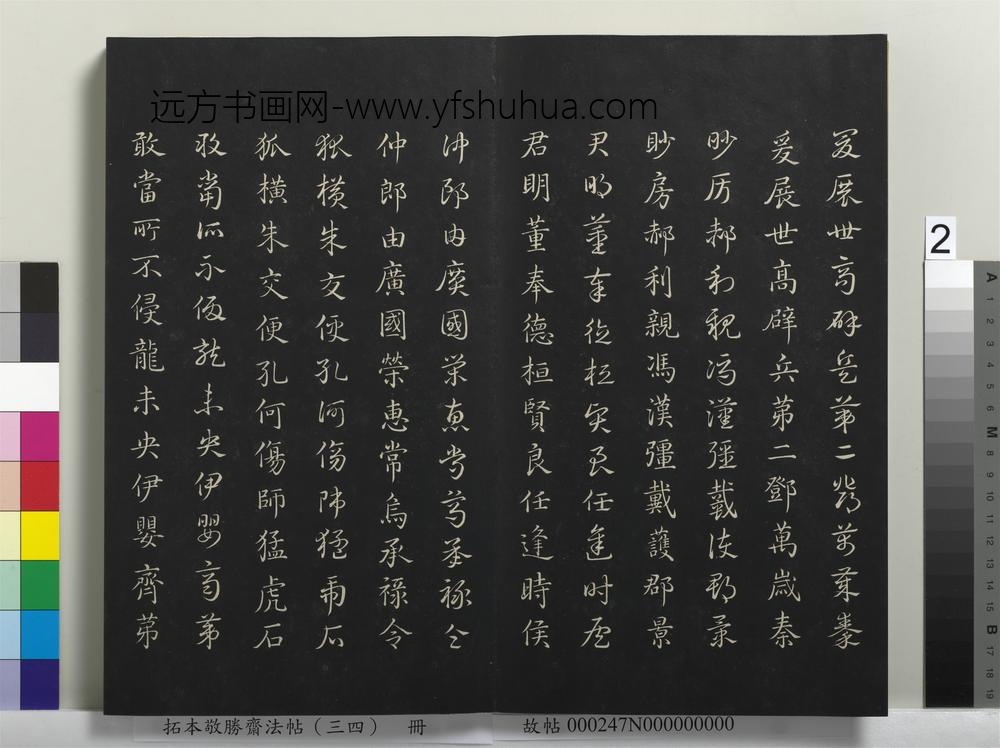 远方书画网-www.yfshuhua.com
爰展世高辟兵第二鄧萬歲秦
爰展世高辟兵第二鄧萬歲秦
眇房郝利親馮漢彊戴護郡景
眇房郝利親馮漢彊戴護郡景
君明董奉德桓賢良任逢時侯
君明董奉德桓賢良任逢時侯
仲郎由廣國榮惠常烏承祿令
仲郎由廣國榮惠常烏承祿令
狐橫朱交便孔何傷師猛虎石
狐橫朱交便孔何傷師猛虎石
敢當所不侵龍未央伊嬰齊第
敢當所不侵龍未央伊嬰齊第
拓本敬勝齋法帖（三四） 冊
故帖 000247N000000000
2
A 1 2 3 4 5 6 M 8 9 10 11 12 13 14 15 B 17 18 19